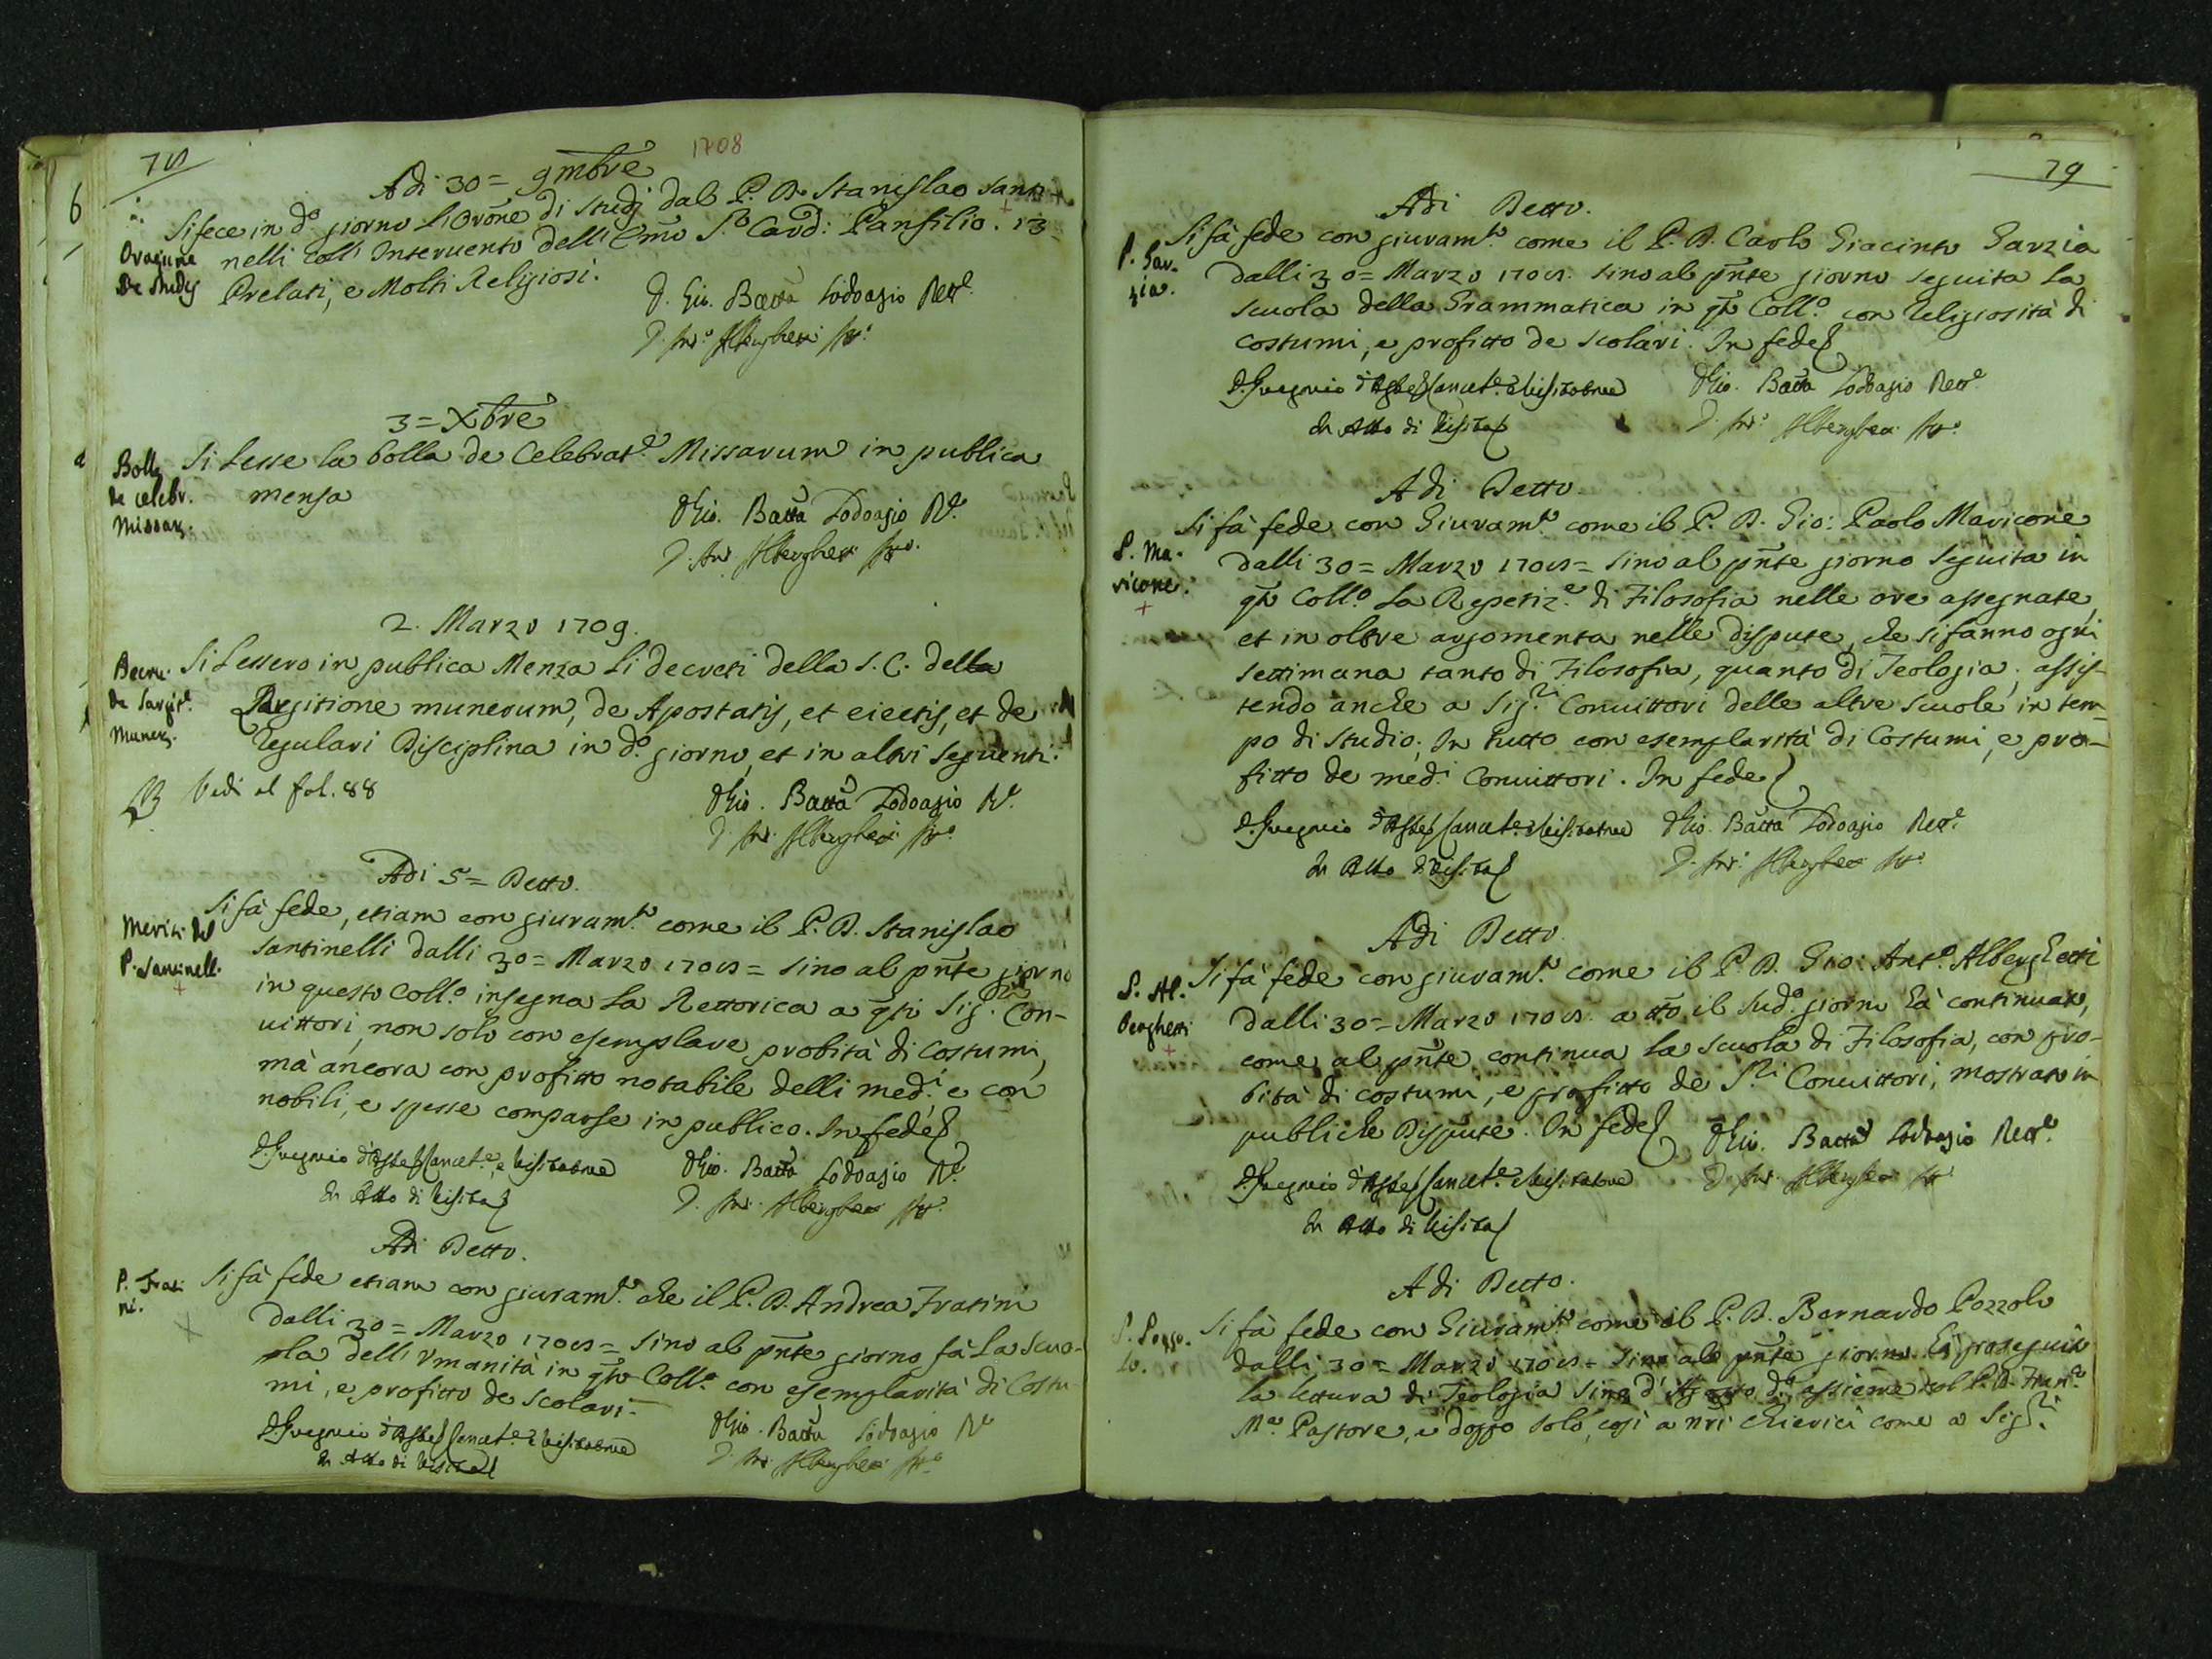 78
1708
6
Adi 30 = 9mbre
Si fece in do giorno l'Orōne di studj dal P. D. Stanislao Santi-
nelli coll'Interuento dell'Emō Sr Card: Panfilio. 13
Prelati, e Molti Religiosi.
Orazione
De Studijs
D. Gio. Batta Lodoagio Rettre
D. Anto Alberghetti Atto
3 = Xbre
Si Lesse la bolla de Celebrate Missarum in publica
mensa
Bolla
de celebr.
Missar.
D Gio. Batta Lodoagio Re
D. Anto Alberghetti Atto
2. Marzo 1709.
Si Lessero in publica Menza li decreti della S. C. della
Largitione munerum, de Apostatis, et eiectis, et de
Regulari Disciplina in do giorno, et in altri seguenti.
Decre.
de Largite
Muner.
Vedi al fol. 88
D Gio. Batta Lodoagio Re
D. Anto Alberghetti Atto
Adi 5 = Detto.
Si fà fede, etiam con giuramto come il P. D. Stanislao
Santinelli dalli 30 = Marzo 1708 = sino al pñte giorno
in questo Collo insegna La Rettorica a qsti Sigri Con-
uittori, non solo con esemplare probità di Costumi,
mà ancora con profitto notabile delli medi e con
nobili, e spesse comparse in publico. In fede
Meriti del
P. Santinelli
+
Cancete e Visitatore
in Atto di Visita
D Gio. Batta Lodoagio Re
D. Anto Alberghetti Atto
Adi Detto.
Si fà fede etiam con giuramto che il P. D. Andrea Fratini
dalli 30 = Marzo 1708 = sino al pñte giorno fà La Scuo-
la delli Vmanità in qsto Collo con esemplarità di Costu
mi, e profitto de Scolari =
P. Frati
ni.
+
Cancete e Visitatore
in Atto di Visita
D Gio. Batta Lodoagio Re
D. Anto Alberghetti Atto
79
Adi Detto.
Si fà fede con giuramto come il P. D. Carlo Giacinto Garzia
dalli 30 = Marzo 1708. sino al pñte giorno seguita La
scuola della Grammatica in qsto Collo con religiosità di
costumi, e profitto de scolari. In fede
P. Gar-
zia.
Cancete e Visitatore
in Atto di Visita
D Gio. Batta Lodoagio Rettre
D. Anto Alberghetti Atto
Adi Detto
Si fà fede con Giuramto come il P. D. Gio: Paolo Mavicone
dalli 30 = Marzo 1708 = sino al pñte giorno seguita in
qsto Collo La Repetize di Filosofia nelle ore assegnate,
et in oltre argomenta nelle dispute, che si fanno ogni
settimana tanto di Filosofia, quanto di Teologia; assis-
tendo anche a Sigri Conuittori delle altre scuole in tem-
po di studio; In tutto con esemplarità di Costumi, e pro-
fitto de medi Conuittori. In fede
P. Ma-
vicone.
+
Cancete e Visitatore
in Atto di Visita
D Gio. Batta Lodoagio Rettre
D. Anto Alberghetti Atto
Adi Detto
Si fà fede con giuramto come il P. D. Gio: Anto Alberghetti
dalli 30 = Marzo 1708. a tto il sudo giorno hà continuato,
come al pñte continua La scuola di Filosofia, con pro-
bità di costumi, e profitto de Sri Conuittori, mostrato in
publiche Dispute. In fede
P. Al-
berghetti
+
D Gio. Batta Lodoagio Rettre
Cancete e Visitatore
D. Anto Alberghetti Atto
in Atto di Visita
Adi Detto.
Si fà fede con Giuramto come il P. D. Bernardo Pozzolo
dalli 30 = Marzo 1708 = sino al pñte giorno hà proseguito
la lettura di Teologia sino d'Agosto do assieme col P. D. Franco
Ma Pastore, e doppo solo, così a nri Chierici come a Sigri
P. Pozzo-
lo.